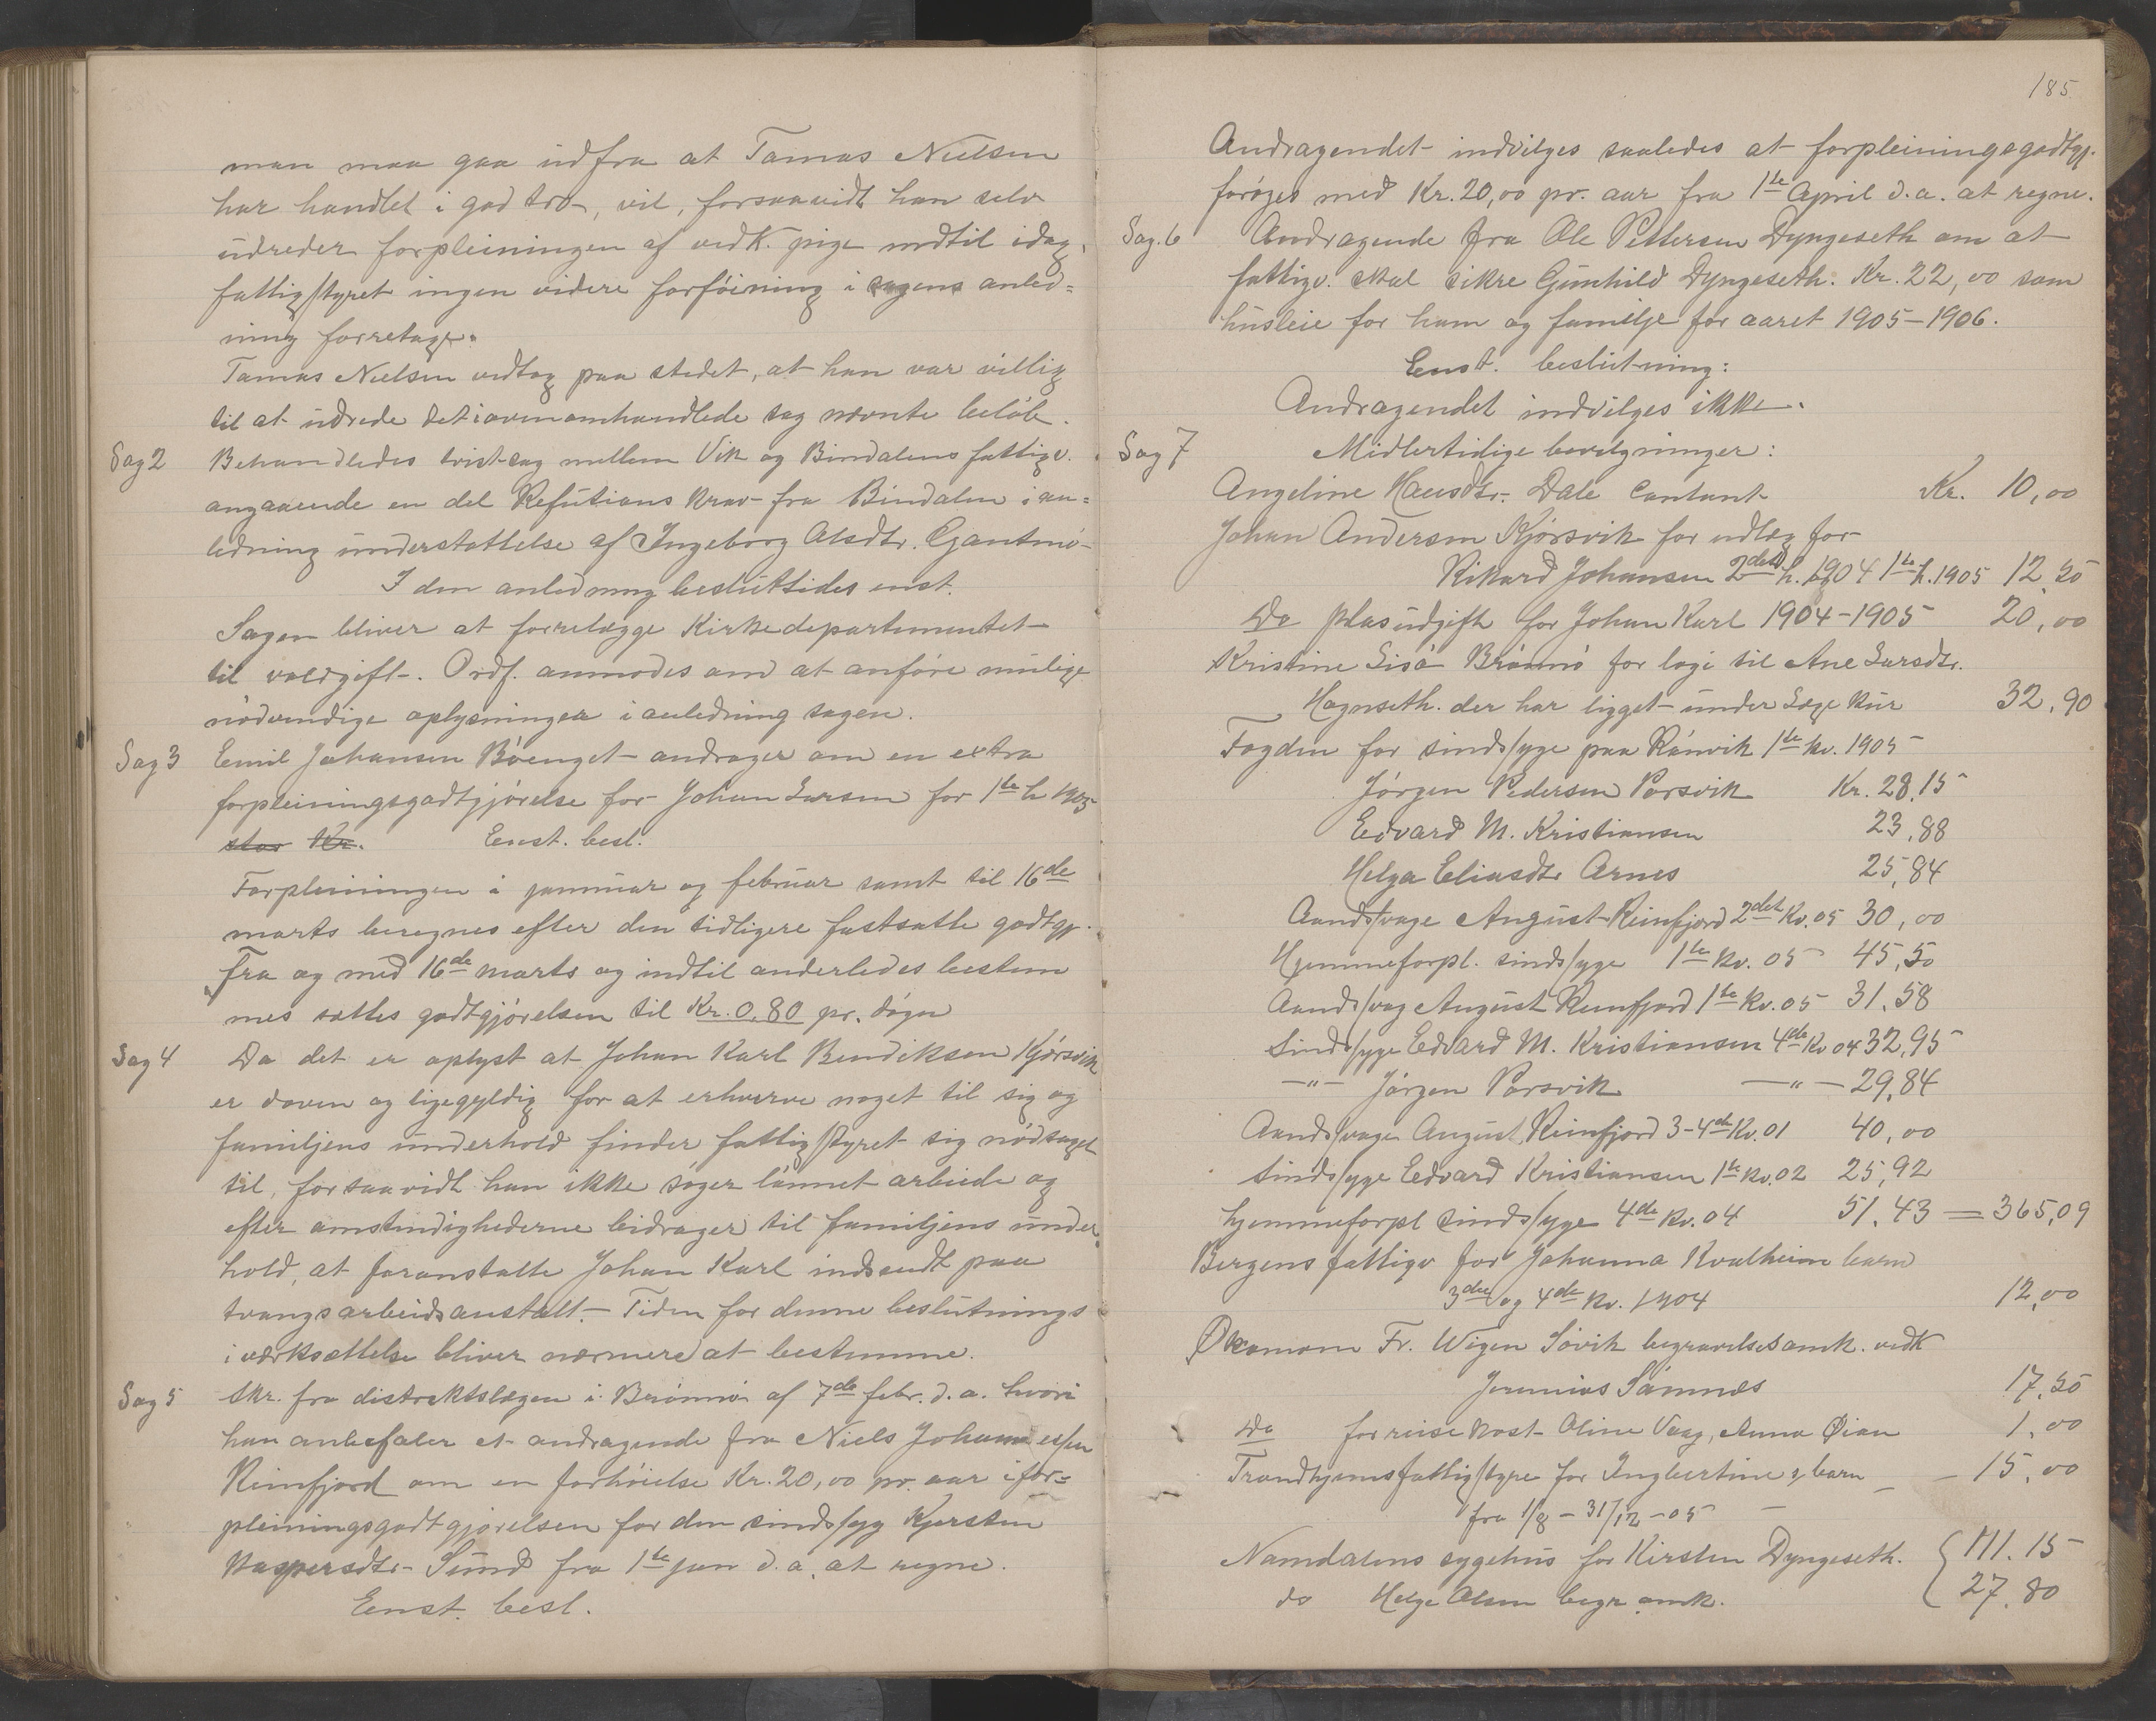 man maa gaa ud fra at Tamas Nielsen
har handlet i god tro, vil, forsaavidt han selv
udreder forpleiningen af vedk. pige indtil idag,
fattigstyret ingen videre forföining i sagens anled=
ning forretage.
Tamas Nielsen vedtog paa stedet, at han var villig
til at udrede det i ovenomhandlede sag nævnte belöb.
Sag 2 Behandledes tvistsag mellem Vik og Bindalens fattigv.
angaaende en del Refutions krav fra Bindalen i an=
ledning understøttelse af Ingeborg Olsdtr. Gjøntmö
I den anledning besluttedes enst.
Sagen bliver at forrelægge Kirkedepartementet
til voldgift. Ordf. anmodes om at anföre mulige
nödvendige oplysninger i anledning sagen.
Sag 3 Emil Johansen Böenget andrager om en extra
forpleiningsgodtgjörelse for Johan Larsen for 1ste h 1905
stor Kr. Enst. besl.
Forpleiningen i januar og februar samt til 16de
marts beregnes efter den tidligere fastsatte godtgj.
Fra og med 16de marts og indtil anderledes bestem
mes sættes godtgjörelsen til Kr. 0,80 pr. dögn
Sag 4 Da det er oplyst at Johan Karl Bendiksen Kjörsvik
er doven og ligegyldig for at erhverve noget til sig og
familjens underhold finder fattigstyret sig nödsaget
til, forsaavidt han ikke söger lönnet arbeide og
efter omstendighederne bidrager til familjens under
hold, at foranstalte Johan Karl indsendt paa
tvangsarbeidsanstalt. Tiden for denne beslutnings
iværksættelse bliver nærmere at bestemme.
Sag 5 Skr. fra distriktslægen i Brönnö af 7de febr. d.a. hvori
han anbefaler et andragende fra Niels Johannessen
Reinfjord om en forhöielse Kr. 20,00 pr. aar i for=
pleiningsgodtgjörelsen for den sindssyg Kjersten
Kaspersdtr. Sund fra 1ste jan d.a. at regne.
Enst. besl.
185
Andragendet indvilges saaledes at forpleiningsgodtgj.
foröges med Kr. 20,00 pr. aar fra 1ste April d.a. at regne.
Sag. 6 Andragende fra Ole Pettersen Dyngeseth om at
fattigv. skal sikre Gunhild Dyngeseth. Kr. 22,00 som
husleie for ham og familje for aaret 1905-1906.
Enst. beslutning:
Andragendet indvilges ikke.
Sag 7 Midlertidige bevilgninger:
Angeline Hansdtr. Dale Contant Kr. 10,00
Johan Andersen Kjörsvik for udlæg for
Rikard Johansen 2det h. 1904 1ste h. 1905 12,50
Do plasudgift for Johan Karl 1904-1905 20,00
Kristine Lisö Brönnö for logi til Ane Larsdtr.
Hognseth. der har ligget under Læge kur 32,90
Fogden for sindssyge paa Rönvik 1ste kv. 1905
Jörgen Pedersen Porsvik Kr. 28,15
Edvard M. Kristiansen 23,88
Helga Eliasdtr Arnes 25,84
Aandssvage August Reinfjord 2det Kv. 05 30,00
Hjemmeforpl. sindssyge 1ste Kv. 05 45,50
Aandssvag August Reinfjord 1ste Kv. 05 31,58
Sindssyge Edvard M. Kristiansen 4de Kv 04 32,95
—"— Jörgen Porsvik —"— 29,84
Aandssvage August Reinfjord 3-4de Kv. 01 40,00
Sindssyge Edvard Kristiansen 1ste Kv. 02 25,92
hjemmeforpl sindssyge 4de Kv. 04 51,43 = 365,09
Bergens fattigv for Johanna Kvalheim barn
3die og 4de Kv. 1904 12,00
Økonom Fr. Wigen Sövik begravelsesomk. vedk
Jeremias Sömnes 17,50
Do for reise kost Oline Vaag, Anna Øian 1,00
Trondhjems fattigstyre for Ingbertines barn 15,00
fra 1/8 - 31/12 - 05
Namdalens sygehus for Kirsten Dyngeseth. { 111. 15
do Helge Olsen begr omk. 27. 80